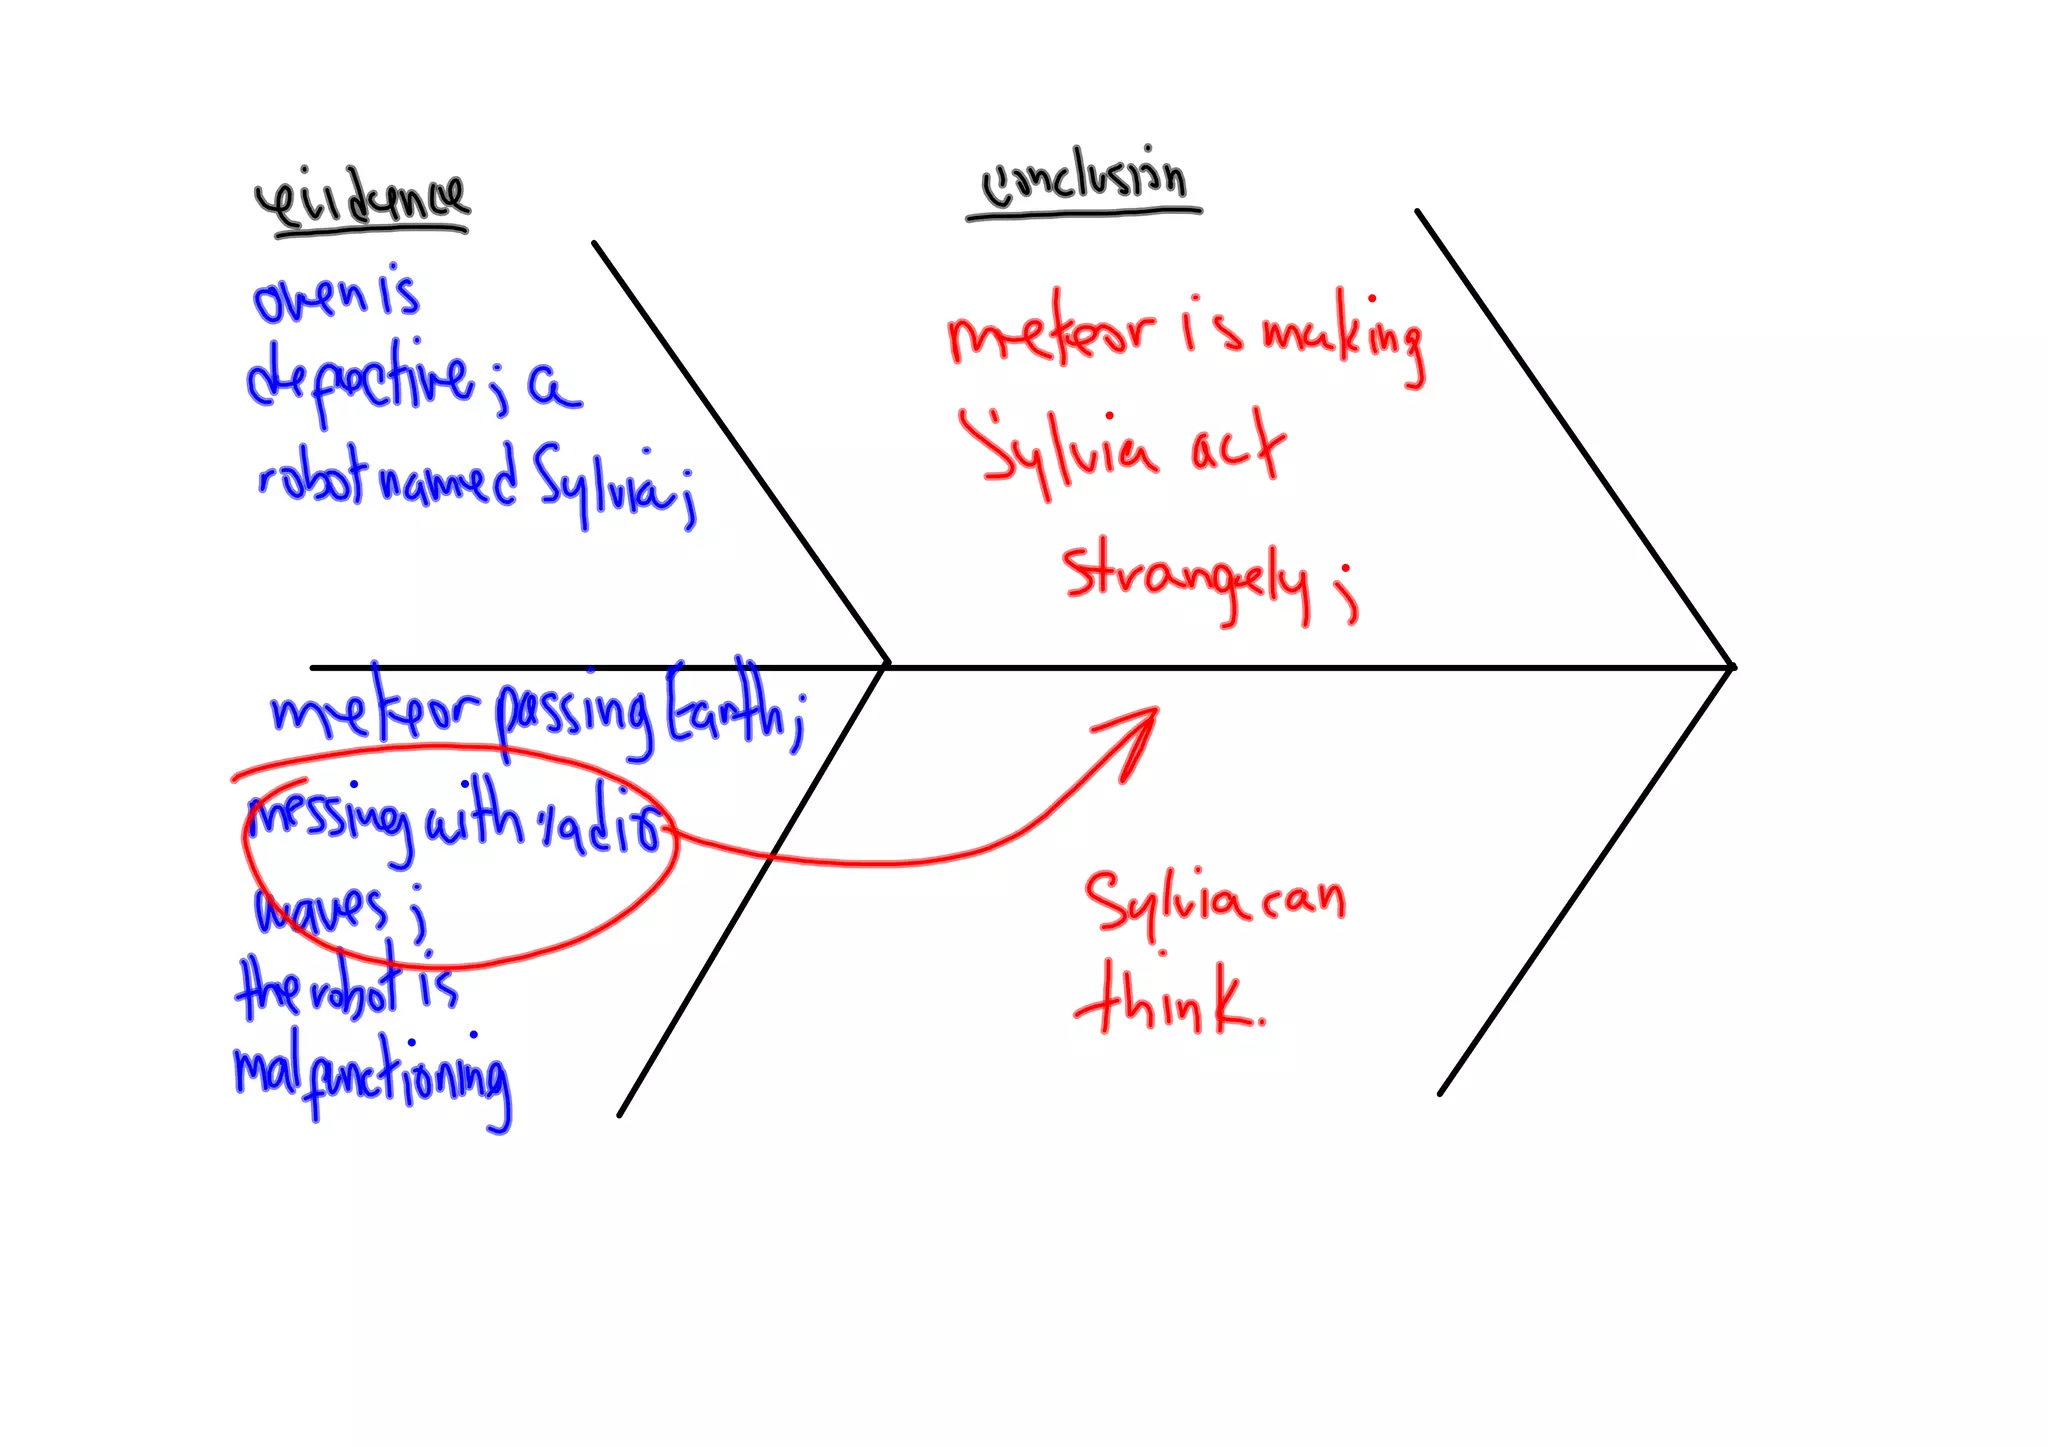 evidence
oven is
defective; a
robot named Sylvia;
meteor passing Earth;
messing with radio
waves;
the robot is
malfunctioning
conclusion
meteor is making
Sylvia act
strangely;
Sylvia can
think.